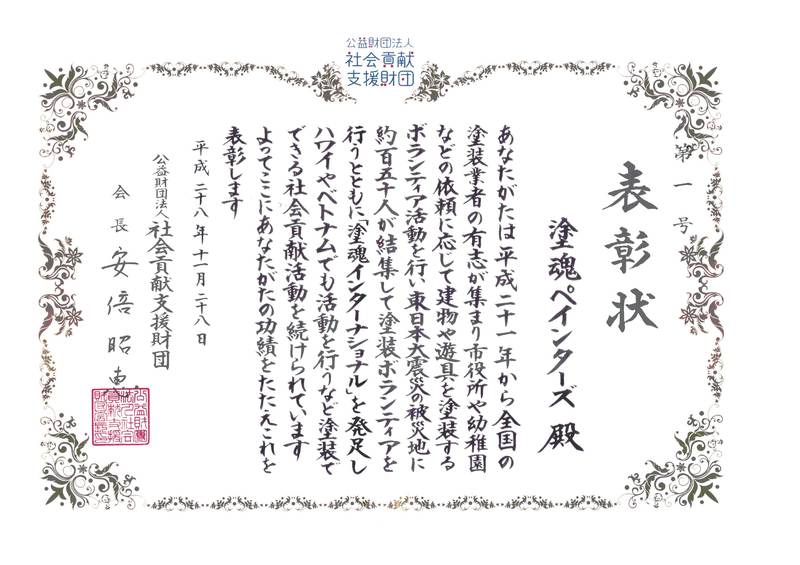 公益財団法人
社会貢献
支援財団
第一号
表彰状
塗魂ペインターズ 殿
あなたがたは平成二十一年から全国の
塗装業者の有志が集まり市役所や幼稚園
などの依頼に応じて建物や遊具を塗装する
ボランティア活動を行い東日本大震災の被災地に
約百五十人が結集して塗装ボランティアを
行うとともに「塗魂インターナショナル」を発足し
ハワイやベトナムでも活動を行うなど塗装で
できる社会貢献活動を続けられています
よってここにあなたがたの功績をたたえこれを
表彰します
平成二十八年十一月二十八日
公益財団法人 社会貢献支援財団
会長 安倍昭恵